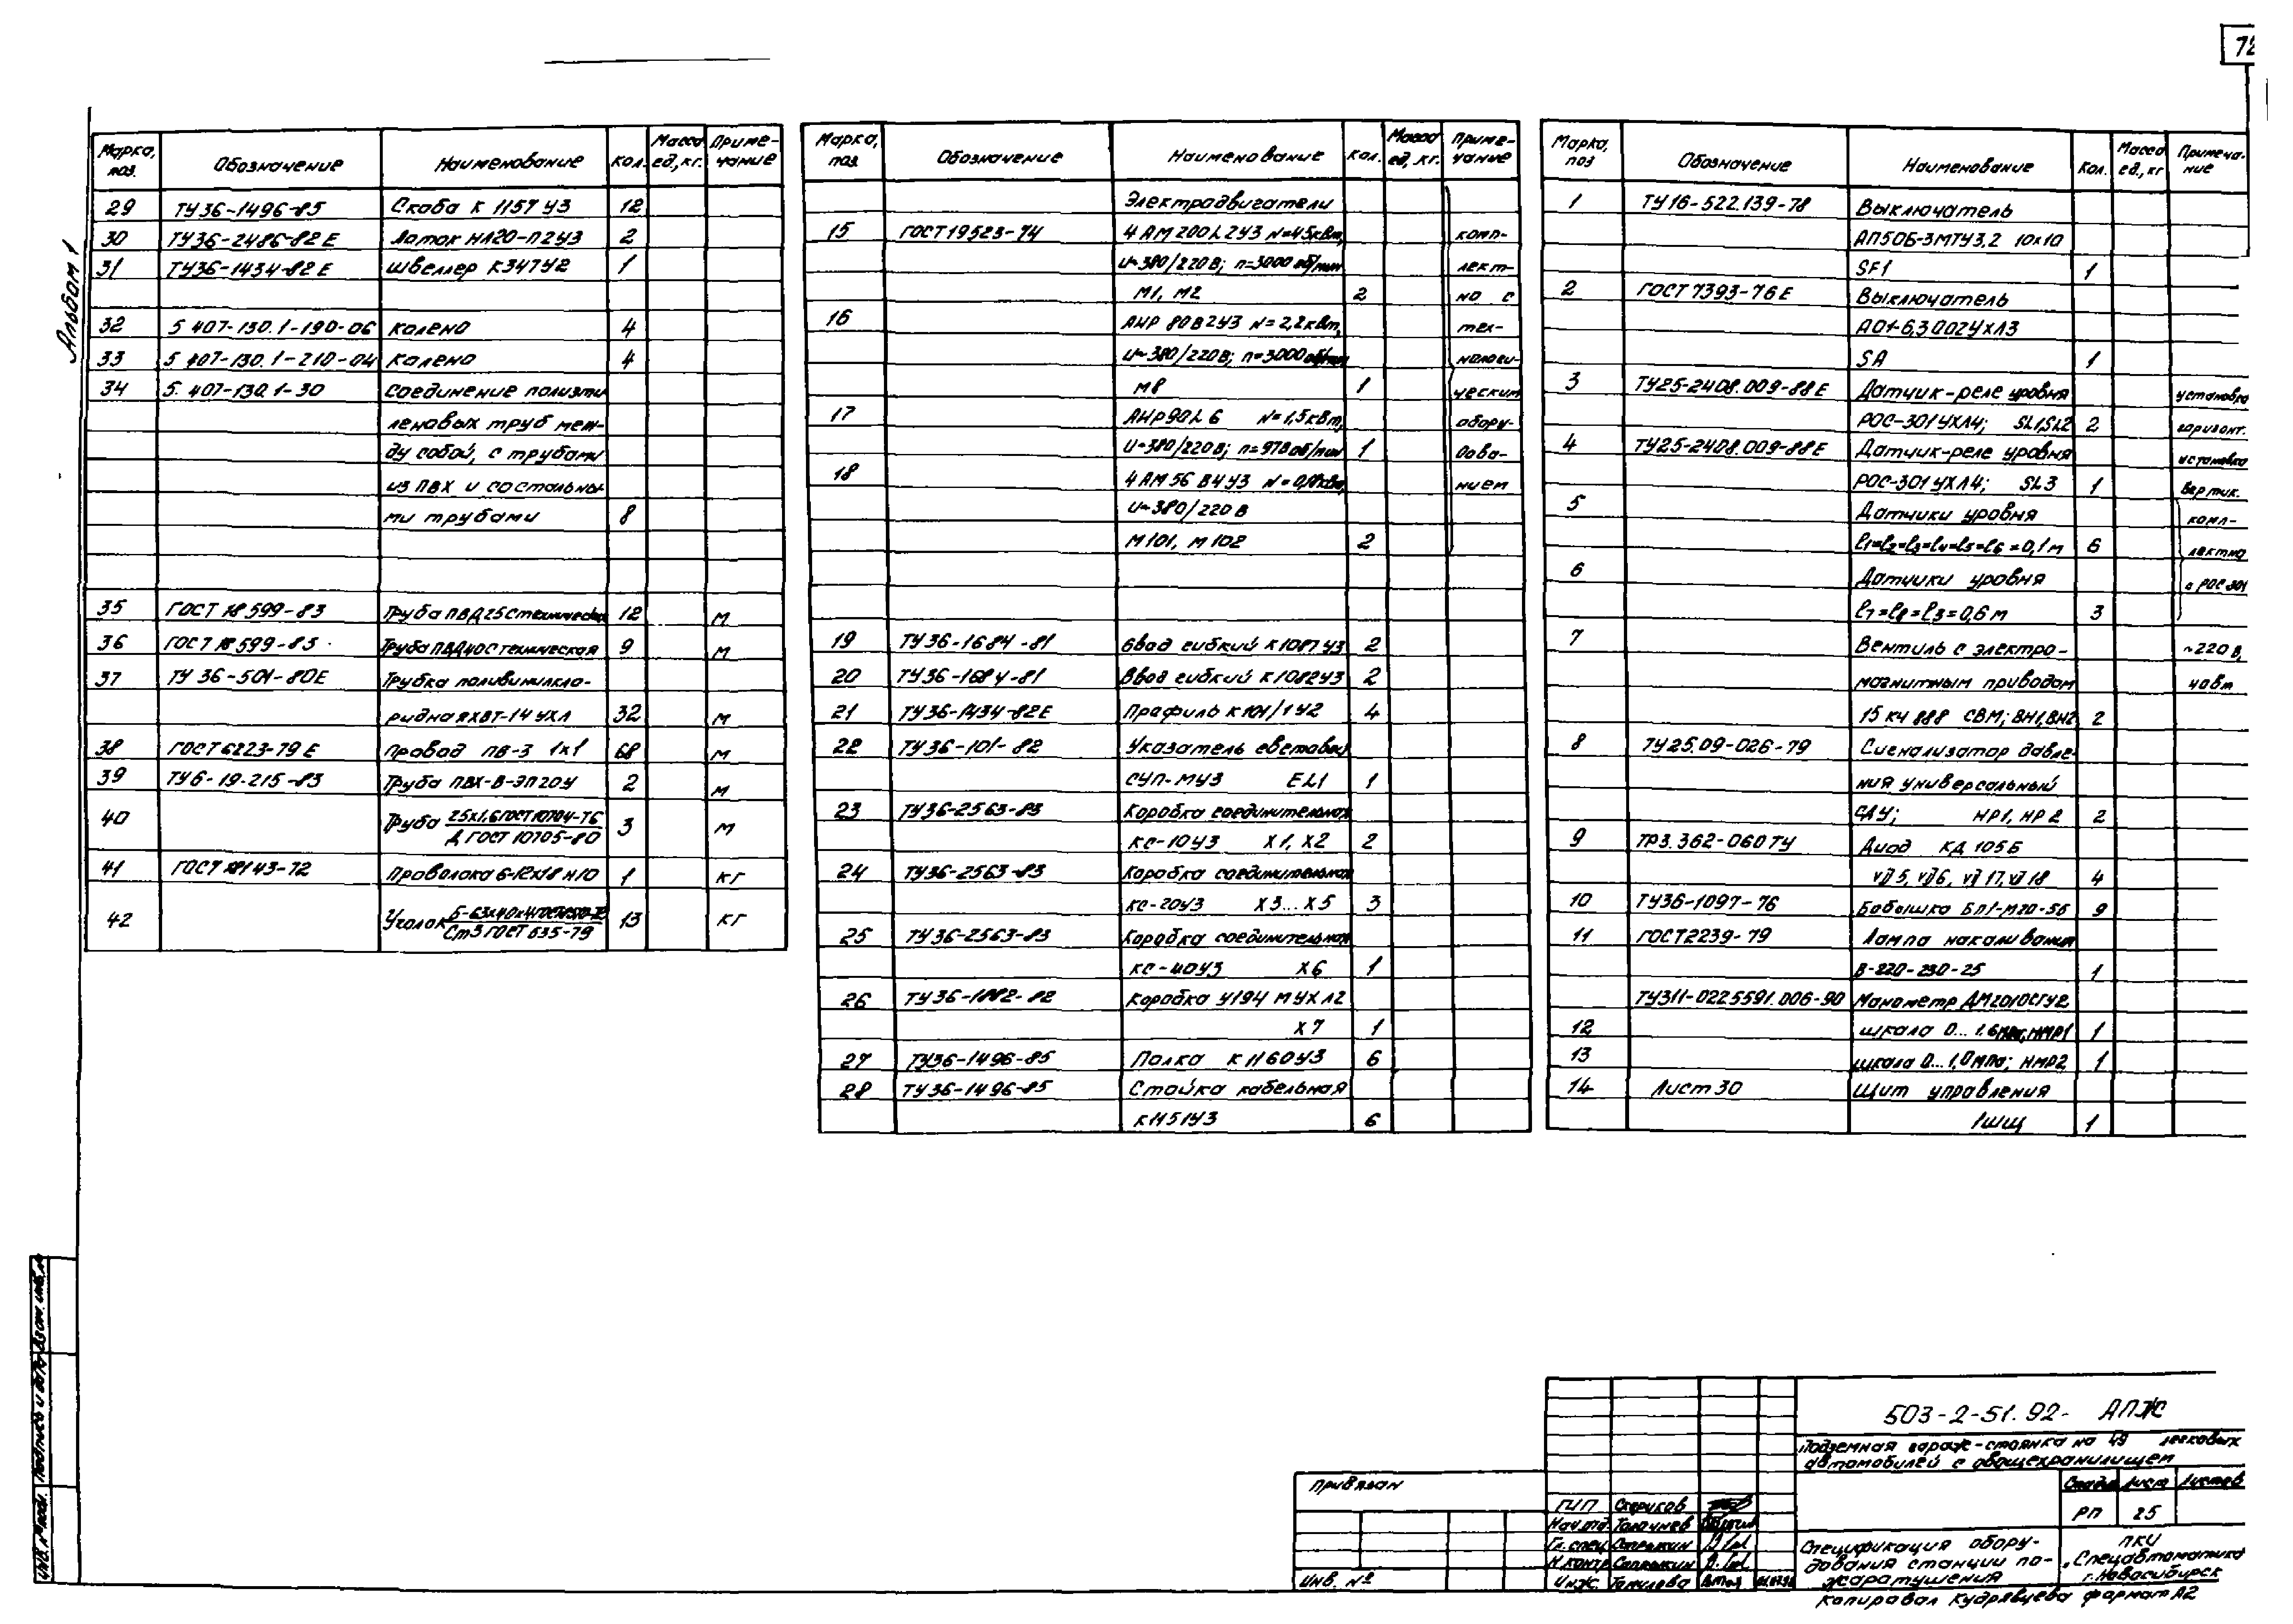 72
Альбом 1
Марка, поз. Обозначение Наименование Кол. Масса ед, кг. Приме-чание
29 ТУ36-1496-85 Скоба К 1157 У3 12
30 ТУ36-2486-82Е Лоток НЛ20-П2У3 2
31 ТУ36-1434-82Е Швеллер К347У2 1
32 5 407-130.1-190-06 Колено 4
33 5 407-130.1-210-04 Колено 4
34 5. 407-130.1-30 Соединение полиэти
леновых труб меж-
ду собой, с трубами
из ПВХ и со стальны-
ми трубами 8
35 ГОСТ 18599-83 Труба ПВД25С техническая 12 м
36 ГОСТ 18599-83 Труба ПВД40С техническая 9 м
37 ТУ 36-501-80Е Трубка поливинилхло-
ридная ХВТ-14 УХЛ 32 м
38 ГОСТ 6223-79 Е Провод ПВ-3 1х1 68 м
39 ТУ6-19-215-83 Труба ПВХ-В-ЭП20У 2 м
40 Труба 25х1,6 ГОСТ 10704-76 3 м
Д ГОСТ 10705-80
41 ГОСТ 18143-72 Проволока 6-12Х18Н10 1 кг
42 Уголок 13 кг
Ст3 ГОСТ 535-79
Марка, поз. Обозначение Наименование Кол. Масса ед, кг. Приме-чание
Электродвигатели
15 ГОСТ 19523-74 4АМ200L2У3 N=45квт, комп-
U~380/220В; n=3000 об/мин лект-
М1, М2 2 но с
16 АИР 80В2У3 N=2,2квт, тех-
U~380/220В; n=3000 об/мин нологи-
М8 1 ческим
17 АИР90L6 N=1,5квт, обору-
U~380/220В; n=978 об/мин 1 дова-
18 4АМ56В4У3 нием
U~380/220В
М101, М102 2
19 ТУ36-1684-81 Ввод гибкий К1087У3 2
20 ТУ36-1684-81 Ввод гибкий К1082У3 2
21 ТУ36-1434-82Е Профиль К101/1У2 4
22 ТУ36-101-82 Указатель световой
СУП-МУ3 EL1 1
23 ТУ36-2563-83 Коробка соединительная
КС-10У3 Х1, Х2 2
24 ТУ36-2563-83 Коробка соединительная
КС-20У3 Х3...Х5 3
25 ТУ36-2563-83 Коробка соединительная
КС-40У3 Х6 1
26 Коробка У194 МУХЛ2
Х7 1
27 ТУ36-1496-85 Полка К1160У3 6
28 ТУ36-1496-85 Стойка кабельная
К1151У3 6
Марка, поз Обозначение Наименование Кол. Масса ед., кг Примеча-ние
1 ТУ16-522.139-78 Выключатель
АП50Б-3МТУ3.2 10х10
SF1 1
2 ГОСТ 7393-76Е Выключатель
А01-6,3 002УХЛ3
SA 1
3 ТУ25-2408.009-88Е Датчик-реле уровня установка
РОС-301УХЛ4; SL1, SL2 2 горизонт.
4 ТУ25-2408.009-88Е Датчик-реле уровня установка
РОС-301УХЛ4; SL3 1 вертик.
5 Датчики уровня комп-
ℓ1=ℓ2=ℓ3=ℓ4=ℓ5=ℓ6=0,1м 6 лектно
6 Датчики уровня с РОС-301
ℓ7=ℓ8=ℓ3=0,6м 3
7 Вентиль с электро- ~220В,
магнитным приводом 40вт
15 кч 888 СВМ; ВН1, ВН2 2
8 ТУ25.09-026-79 Сигнализатор давле-
ния универсальный
СДУ; НР1, НР2 2
9 ТР3.362-060ТУ Диод КД 105Б
VД5, VД6, VД17, VД18 4
10 ТУ36-1097-76 Бобышка БП1-М20-56 9
11 ГОСТ 2239-79 Лампа накаливания
В-220-230-25 1
ТУ311-0225591.006-90 Манометр ДМ2010СГУ2
12 шкала 0...1,6МПа; НМР1 1
13 шкала 0...1,0МПа; НМР2 1
14 Лист 30 Щит управления
1ШЩ 1
503-2-51.92- АПЖ
Подземная гараж-стоянка на 49 легковых
автомобилей с овощехранилищем
Стадия Лист Листов
РП 25
Спецификация обору-
дования станции по-
жаротушения
ПКИ
"Спецавтоматика
г.Новосибирск
Привязан
Инв. №
ГИП Стариков
Нач.отд.
Гл. спец Сапрыкин
Н.контр Сапрыкин
Инж. Томилова
Копировал Кудрявцева формат А2
Инв. № подл. Подпись и дата Взам. инв. №